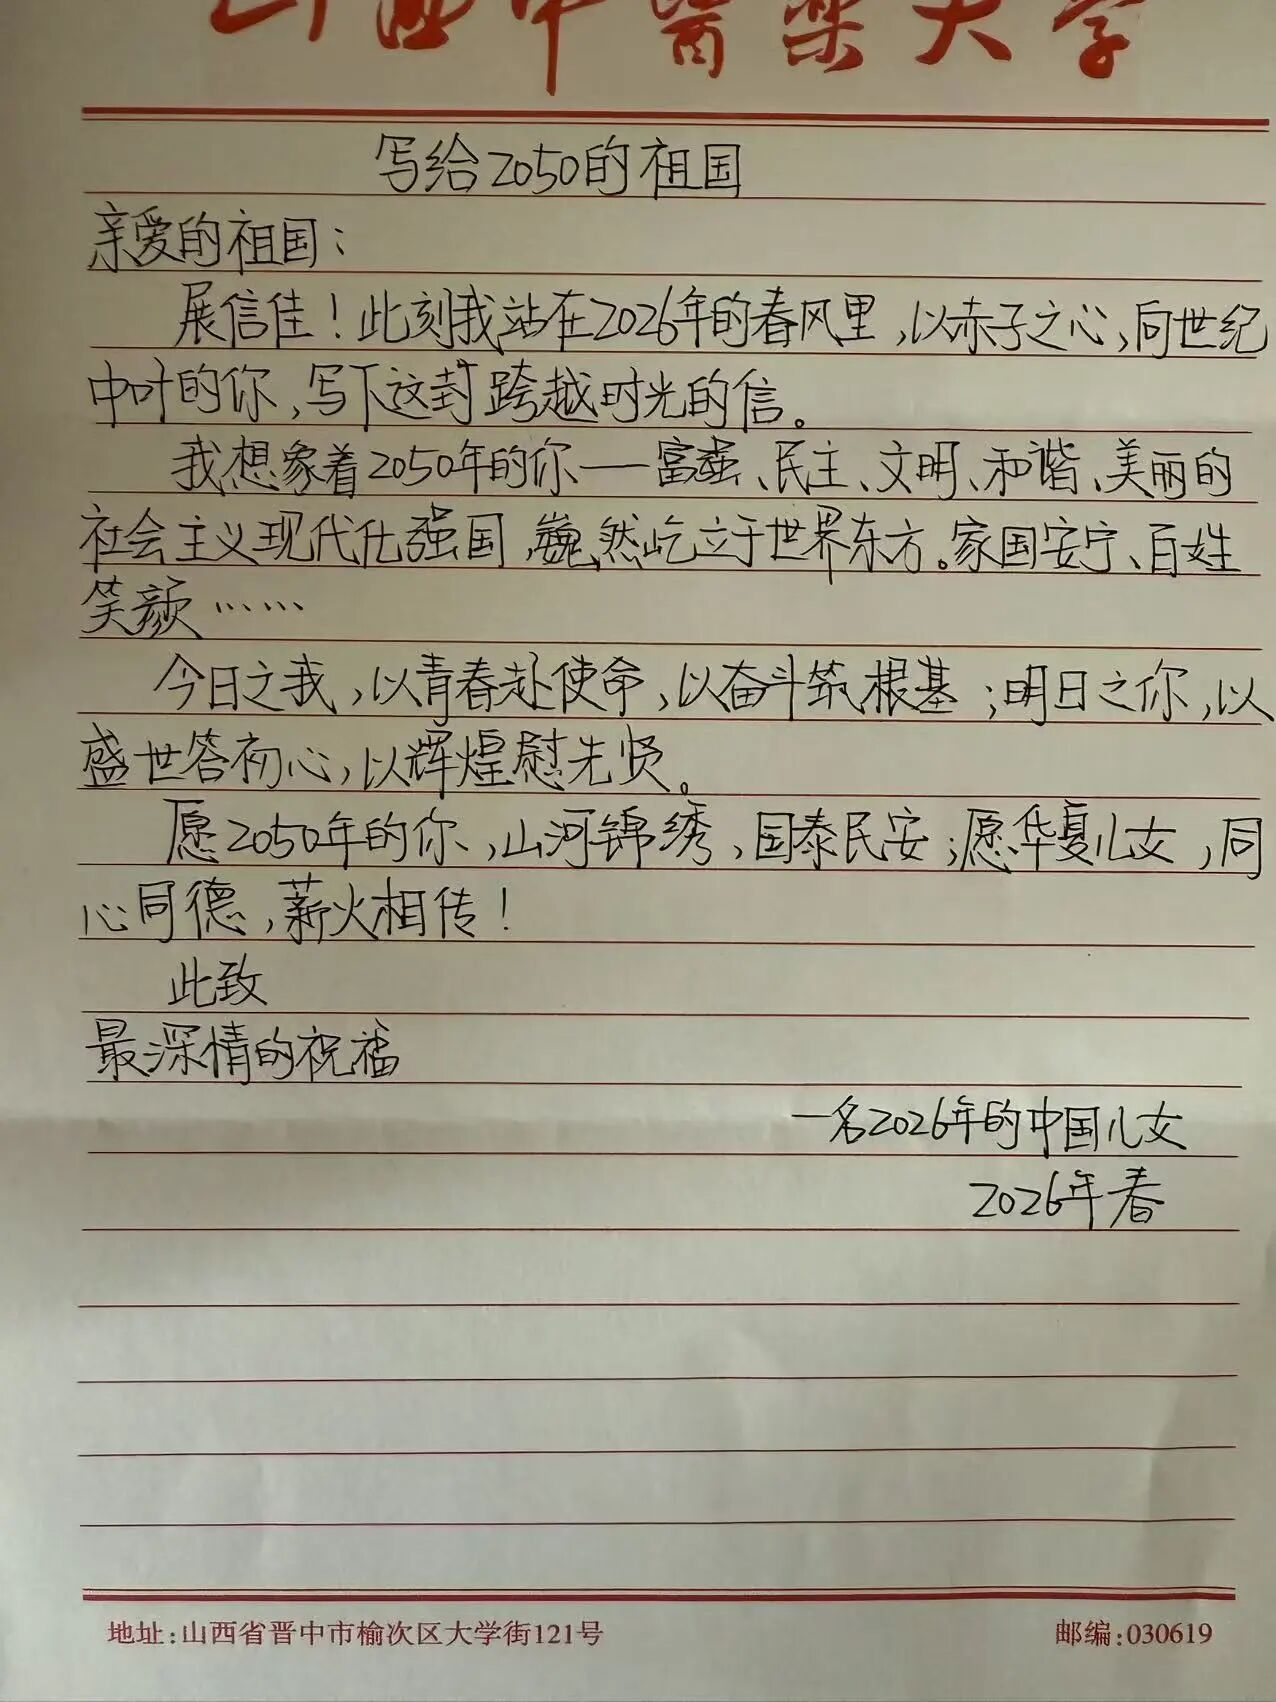 山西中醫藥大学
写给2050的祖国
亲爱的祖国：
展信佳！此刻我站在2026年的春风里，以赤子之心，向世纪
中叶的你，写下这封跨越时光的信。
我想象着2050年的你——富强、民主、文明、和谐、美丽的
社会主义现代化强国，巍然屹立于世界东方。家国安宁、百姓
笑颜……
今日之我，以青春赴使命，以奋斗筑根基；明日之你，以
盛世答初心，以辉煌慰先贤。
愿2050年的你，山河锦绣，国泰民安；愿华夏儿女，同
心同德，薪火相传！
此致
最深情的祝福
一名2026年的中国儿女
2026年春
地址:山西省晋中市榆次区大学街121号 邮编:030619